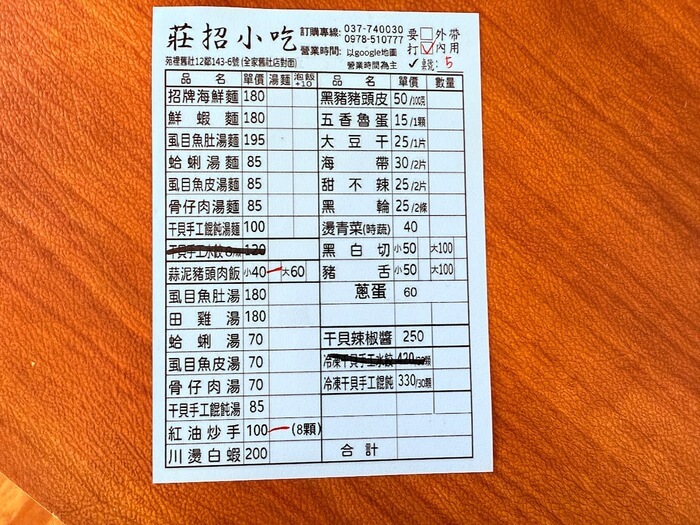 莊招小吃 訂購專線: 037-740030 0978-510777 要□外帶
苑裡舊社12鄰143-6號 (全家舊社店對面) 營業時間: 以google地圖營業時間為主 打☑內用
✓桌號: 5
品名 單價 湯麵 泡飯+10 品名 單價 數量
招牌海鮮麵 180 黑豬豬頭皮 50/100克
鮮蝦麵 180 五香魯蛋 15/1顆
虱目魚肚湯麵 195 大豆干 25/1片
蛤蜊湯麵 85 海帶 30/2片
虱目魚皮湯麵 85 甜不辣 25/2片
骨仔肉湯麵 85 黑輪 25/2條
干貝手工餛飩湯麵 100 燙青菜(時蔬) 40
干貝手工水餃 120 黑白切 小50 大100
蒜泥豬頭肉飯 小40 大60 豬舌 小50 大100
虱目魚肚湯 180 蔥蛋 60
田雞湯 180
蛤蜊湯 70 干貝辣椒醬 250
虱目魚皮湯 70 冷凍干貝手工水餃 420
骨仔肉湯 70 冷凍干貝手工餛飩 330/30顆
干貝手工餛飩湯 85
紅油炒手 100 (8顆)
川燙白蝦 200 合計